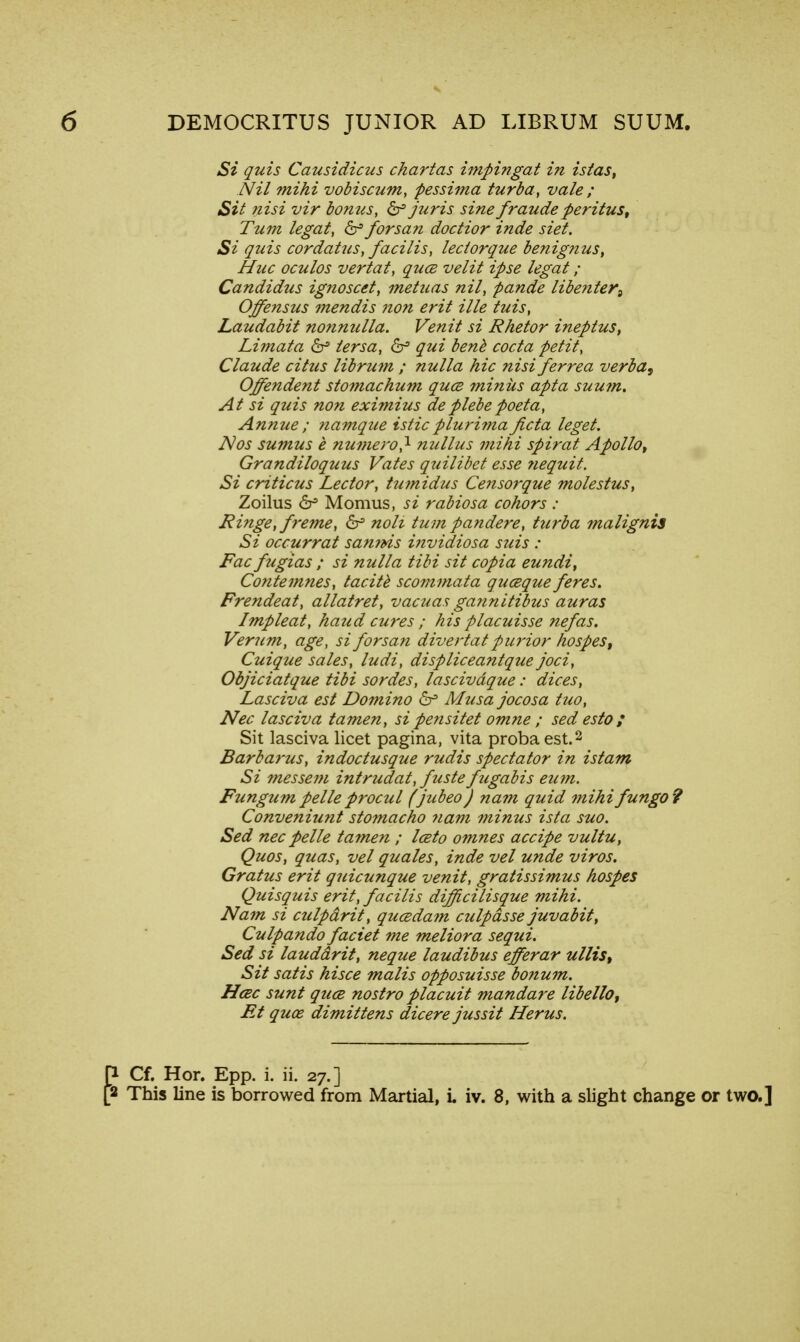 6 DEMOCRITUS JUNIOR AD LIBRUM SUUM.
Si quis Causidicus chartas impingat in istas,
Nil mihi vobiscum, pessima turba, vale ;
Sit nisi vir bonus, & juris sine fraude peritus,
Tum legat, & forsan doctior inde siet.
Si quis cordatus, facilis, lectorque benignus,
Huc oculos vertat, quæ velit ipse legat ;
Candidus ignoscet, metuas nil, pande libenter,
Offensus mendis non erit ille tuis,
Laudabit nonnulla. Venit si Rhetor ineptus,
Limata & tersa, & qui benè cocta petit,
Claude citus librum ; nulla hic nisi ferrea verba,
Offendent stomachum quæ minùs apta suum.
At si quis non eximius de plebe poeta,
Annue ; namque istic plurima ficta leget.
Nos sumus è numero,¹ nullus mihi spirat Apollo,
Grandiloquus Vates quilibet esse nequit.
Si criticus Lector, tumidus Censorque molestus,
Zoilus & Momus, si rabiosa cohors :
Ringe, freme, & noli tum pandere, turba malignis
Si occurrat sannis invidiosa suis :
Fac fugias ; si nulla tibi sit copia eundi,
Contemnes, tacitè scommata quæque feres.
Frendeat, allatret, vacuas gannitibus auras
Impleat, haud cures ; his placuisse nefas.
Verum, age, si forsan divertat purior hospes,
Cuique sales, ludi, displiceantque joci,
Objiciatque tibi sordes, lasciváque : dices,
Lasciva est Domino & Musa jocosa tuo,
Nec lasciva tamen, si pensitet omne ; sed esto ;
Sit lasciva licet pagina, vita proba est.²
Barbarus, indoctusque rudis spectator in istam
Si messem intrudat, fuste fugabis eum.
Fungum pelle procul (jubeo) nam quid mihi fungo ?
Conveniunt stomacho nam minus ista suo.
Sed nec pelle tamen ; læto omnes accipe vultu,
Quos, quas, vel quales, inde vel unde viros.
Gratus erit quicunque venit, gratissimus hospes
Quisquis erit, facilis difficilisque mihi.
Nam si culpârit, quædam culpâsse juvabit,
Culpando faciet me meliora sequi.
Sed si laudârit, neque laudibus efferar ullis,
Sit satis hisce malis opposuisse bonum.
Hæc sunt quæ nostro placuit mandare libello,
Et quæ dimittens dicere jussit Herus.
[¹ Cf. Hor. Epp. i. ii. 27.]
[² This line is borrowed from Martial, i. iv. 8, with a slight change or two.]